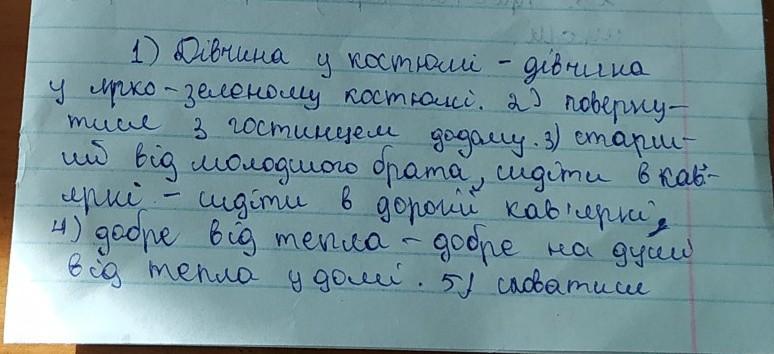 1) Дівчина у костюмі - дівчина
у ярко-зеленому костюмі. 2) поверну-
тися з гостинцем додому. 3) старш-
ий від молодшого брата, сидіти в кав'-
яркі - сидіти в дорогій кав'ярні,
4) добре від тепла - добре на душі
від тепла у домі. 5) сховатися